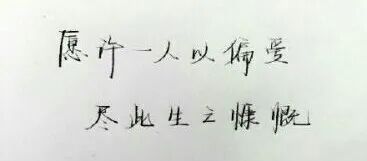 愿许一人以偏爱
尽此生之慷慨